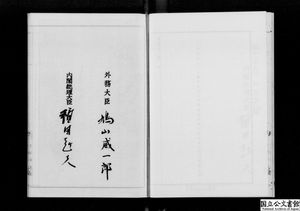 外務大臣 鳩山威一郎
内閣総理大臣 福田赳夫
国立公文書館
National Archives of Japan